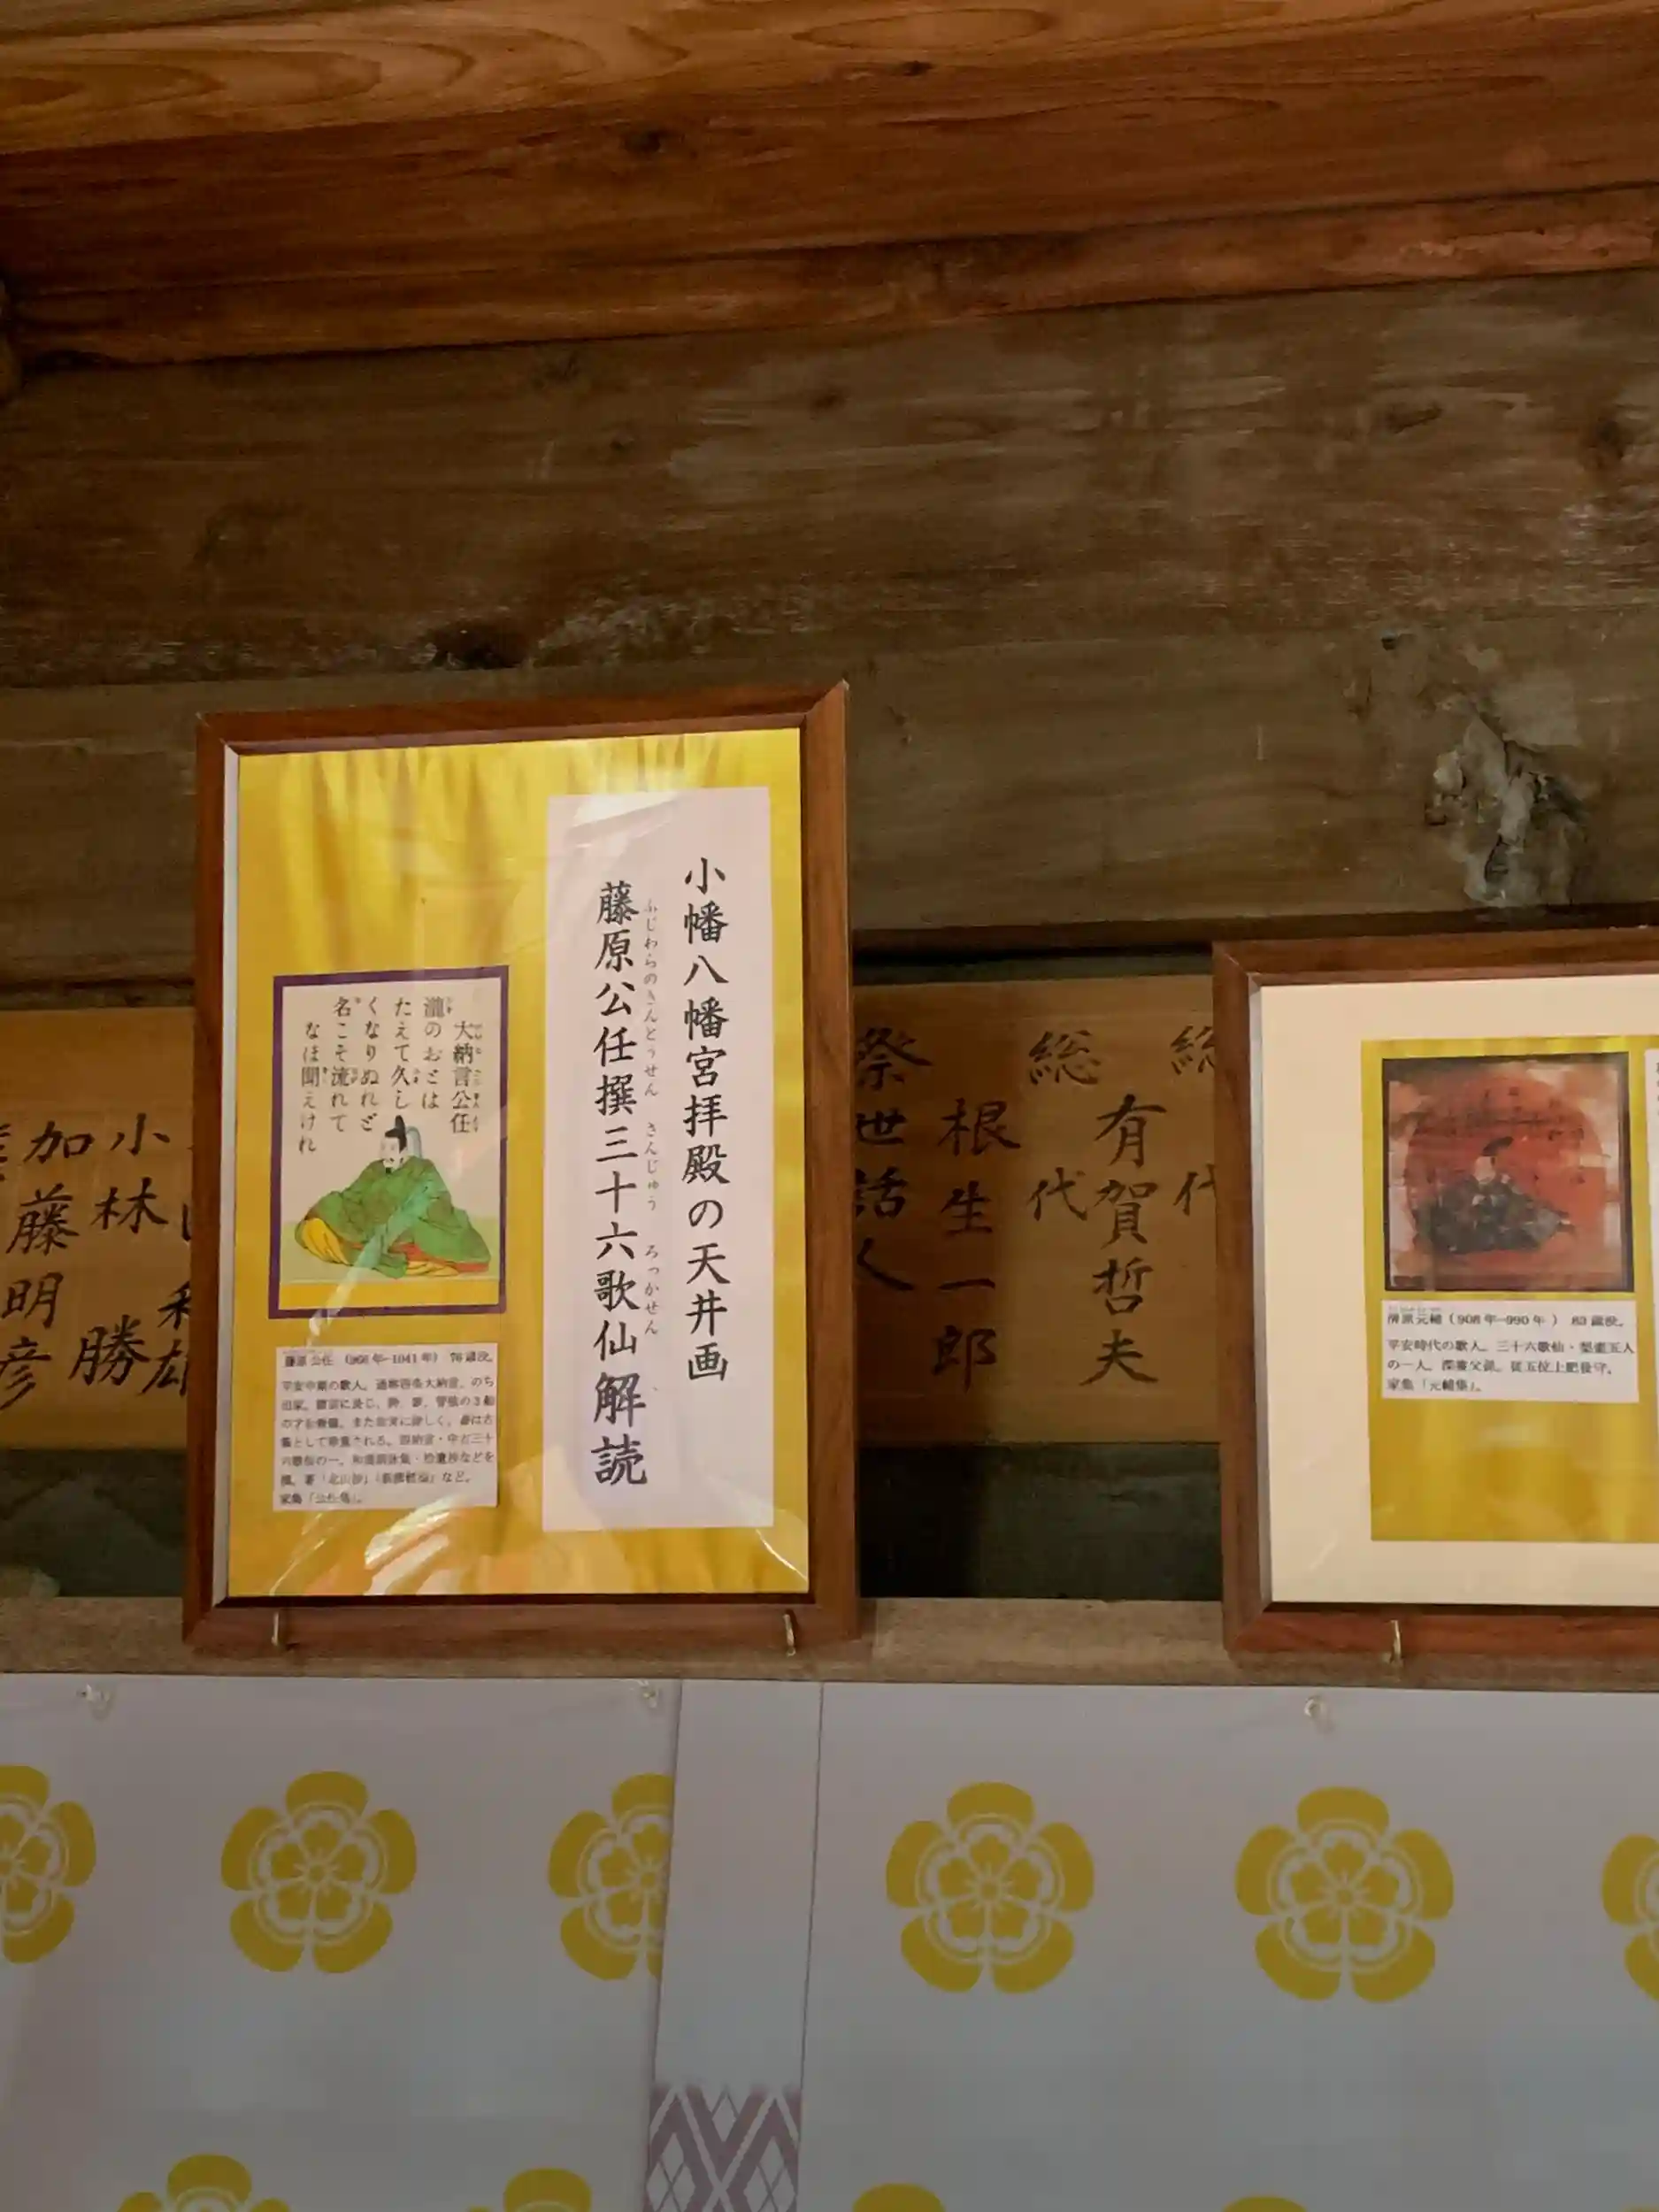 小幡八幡宮拝殿の天井画
藤原公任撰三十六歌仙解読
ふじわらのきんとうせん さんじゅう ろっかせん
大納言公任
瀧のおとは
たえて久し
くなりぬれど
名こそ流れて
なほ聞えけれ
藤原公任 (966年-1041年) 76歳没。
家集「公任集」。
総代
有賀哲夫
総代
根生一郎
祭世話人
小林 勝
加藤明彦
清原元輔 (908年-990年) 83歳没。
平安時代の歌人。三十六歌仙・梨壷五人
の一人。深養父孫。従五位上肥後守。
家集「元輔集」。